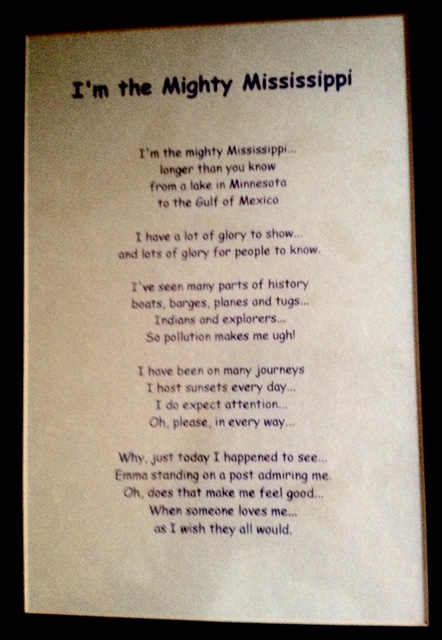 I'm the Mighty Mississippi
I'm the mighty Mississippi...
longer than you know
from a lake in Minnesota
to the Gulf of Mexico
I have a lot of glory to show...
and lots of glory for people to know.
I've seen many parts of history
boats, barges, planes and tugs...
Indians and explorers...
So pollution makes me ugh!
I have been on many journeys
I host sunsets every day...
I do expect attention...
Oh, please, in every way...
Why, just today I happened to see...
Emma standing on a post admiring me.
Oh, does that make me feel good...
When someone loves me...
as I wish they all would.